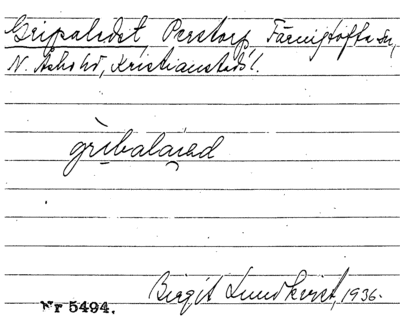 Gripaledet, Perstorp, Färingtofta sn,
N. Åsbo hd, Kristianstads l.
gribalaiəd
Birgit Lundkvist, 1936.
Nr 5494.